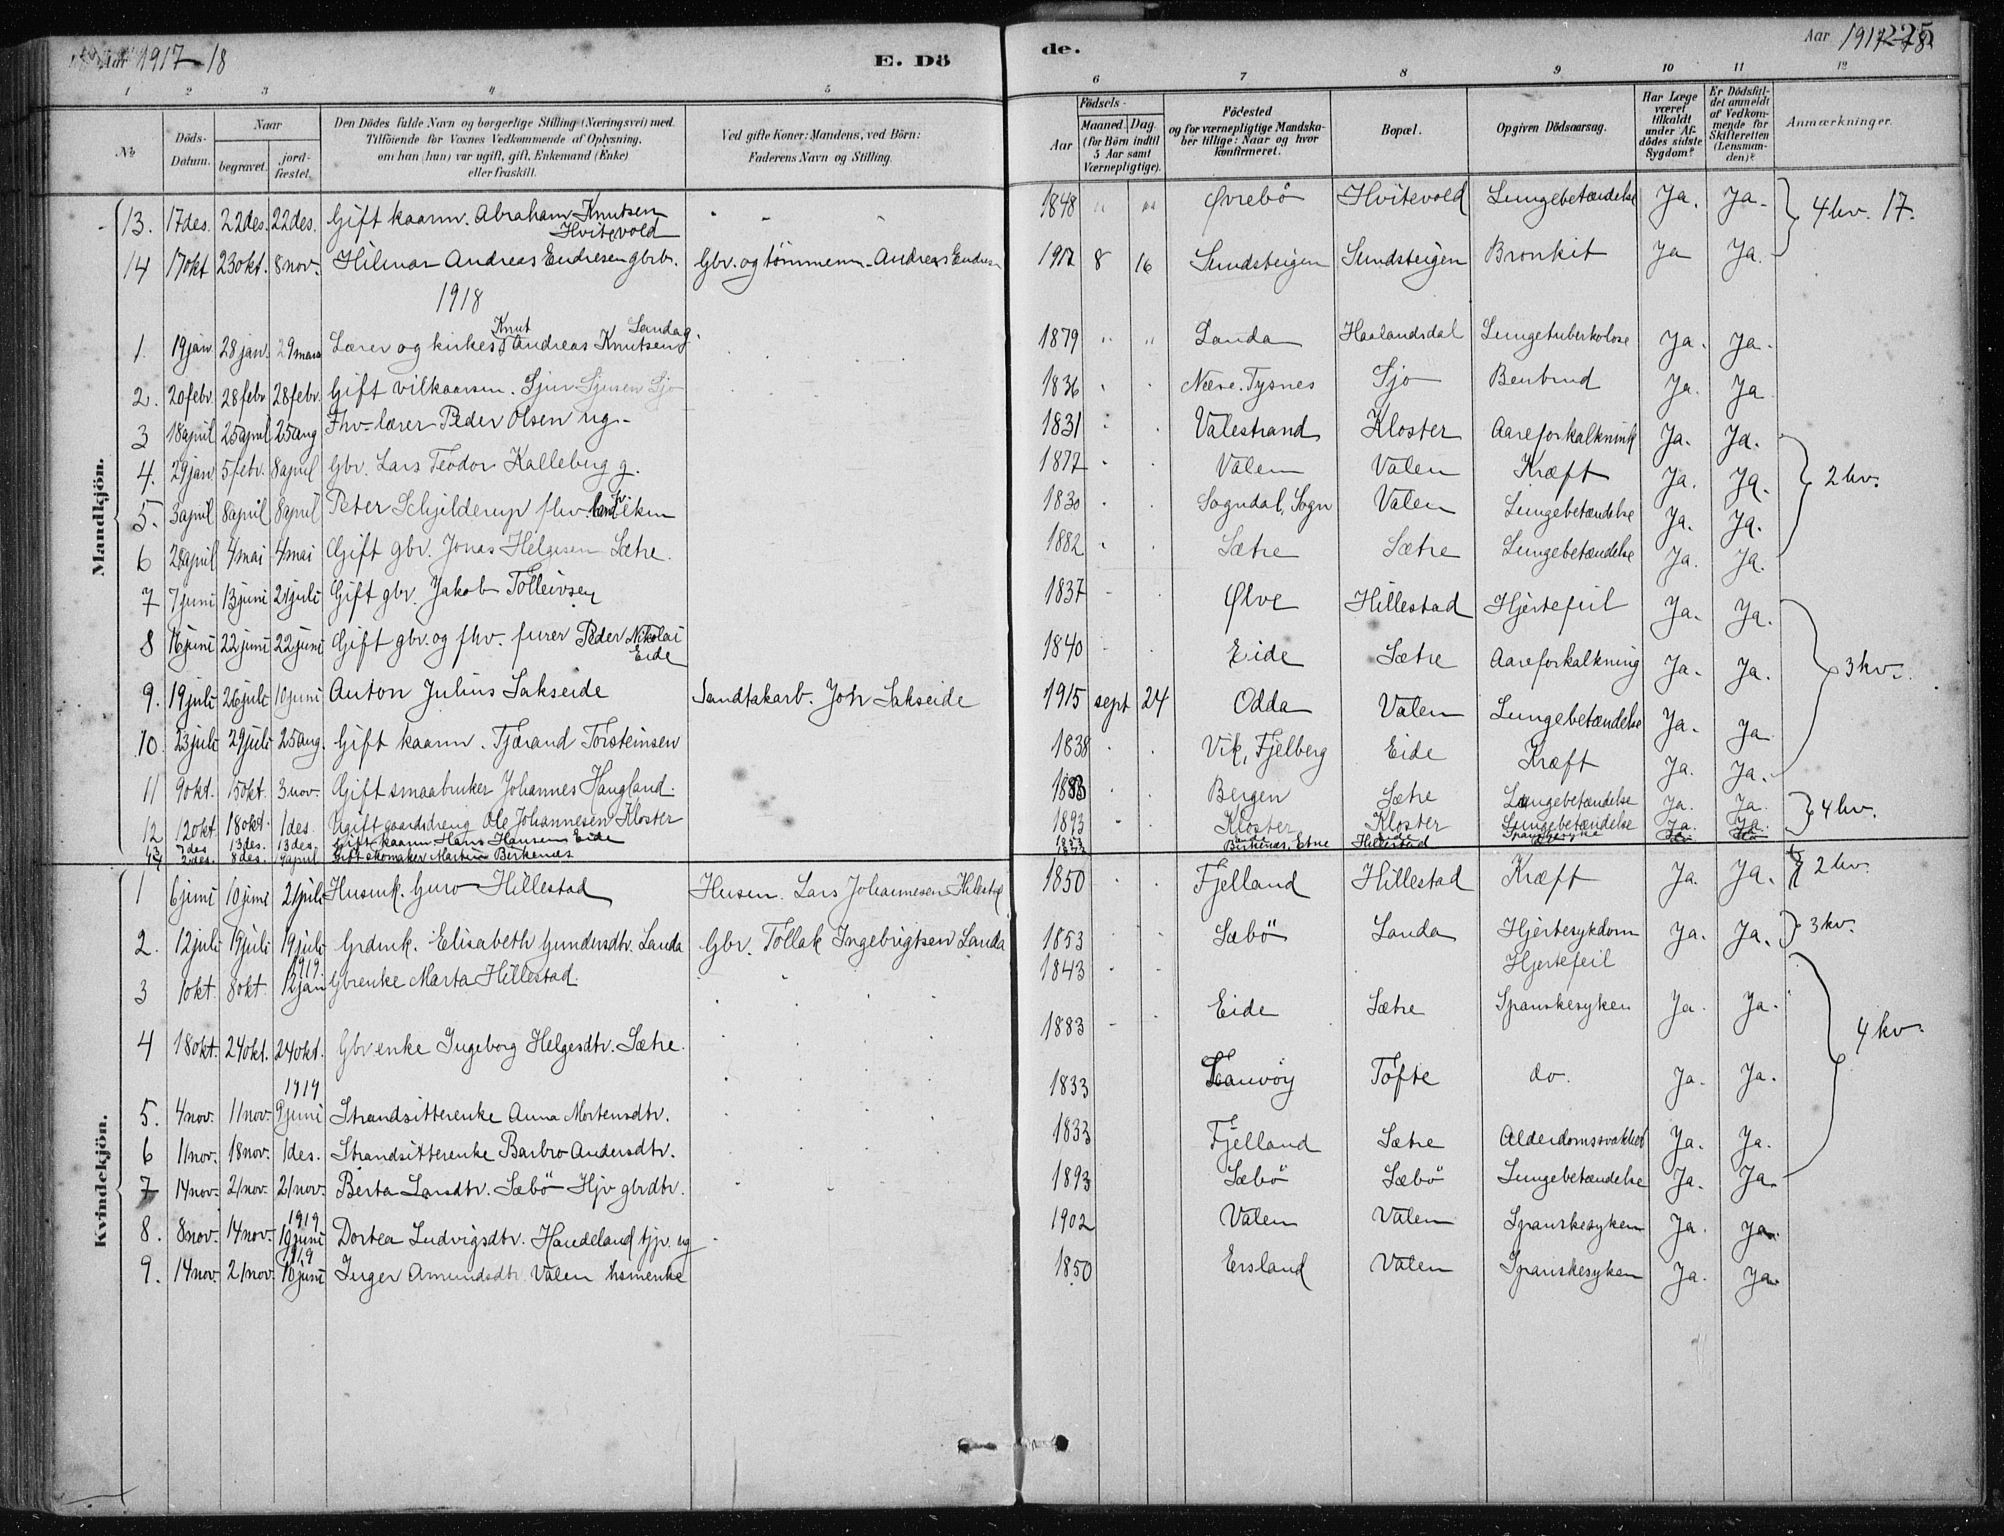 Aar 1917-18 E. Dö
de. Aar 1917-18. 225
1 2 3 4 5 6 7 8 9 10 11 12
No Döds-Datum. Naar begravet. jordfæstet. Den Dödes fulde Navn og borgerlige Stilling (Næringsvei) med Tilföiende for Voxnes Vedkommende af Oplysning, om han (hun) var ugift, gift, Enkemand (Enke) eller fraskilt. Ved gifte Koner: Mandens, ved Börn: Faderens Navn og Stilling. Födsels- Aar Maaned. Dag. (for Börn indtil 5 Aar samt Værnepligtige). Födested og for værnepligtige Mandskaber tillige: Naar og hvor konfirmeret. Bopæl. Opgiven Dödsaarsag. Har Læge været tilkaldt under Afdödes sidste Sygdom? Er Dödsfaldet anmeldt af Vedkommende for Skifteretten (Lensmanden)? Anmærkninger.
Mandkjön.
13. 17des. 22des. 22des. Gift kaarm. Abraham Knutsen Hvitevold 1848 Øvrebö Hvitevold Lungebetændelse Ja. Ja. 4 kv. 17.
14 17okt 23okt. 8nov. Hilmar Andreas Endresen gbrb. Gbr. og tömmerm. Andreas Endresen 1917 8 16 Sundsteigen Sundsteigen Bronkit Ja Ja.
1918
1. 19jan. 28jan. 29mars Lærer og kirkes. Knut Andreas Knutsen Landa g. 1879 Landa Haalandsdal Lungetuberkolose Ja. Ja.
2. 20febr. 28febr. 28febr. Gift vilkaarsm. Sjur Sjursen Sjo 1836 Nære. Tysnes Sjo Benbrud Ja. Ja
3 18april 25april 25aug Fhv. lærer Peder Olsen ug. 1831 Valestrand Kloster Aareforkalkning Ja. Ja.
4. 29jan 5febr. 8april Gbr. Lars Teodor Kalleberg g. 1877 Valen Valen Kræft Ja. Ja. 2 kv.
5. 3april 8april 8april Peter Schjilderup fhv. 1830 Sogndal, Sogn Valen Lungebetændelse Ja. Ja.
6 28april 4mai 4mai Gift gbr. Jonas Helgesen Sætre. 1882 Sætre Sætre Lungebetændelse Ja. Ja.
7 7juni 13juni 21juli Gift gbr. Jakob Tolleivsen 1837 Ølve Hillestad Hjertefeil Ja. Ja.
8 16juni 22juni 22juni Gift gbr. og fhv. furer Peder Nikolai Eide 1840 Eide Sætre Aareforkalkning Ja. Ja. 3 kv.
9. 19juli 26juli 10juni Anton Julius Sakseide Sandtakarb. Joh Sakseide 1915 sept 24 Odda Valen Lungebetændelse Ja. Ja
10. 23juli 29juli 25aug. Gift kaarm. Tjærand Torsteinsen 1838 Vik, Fjelberg Eide Kræft Ja. Ja.
11 9okt. 15okt. 3nov. Gift smaabruker Johannes Haugland. 1883 Bergen Sætre Lungebetændelse Ja. Ja. 4 kv.
12 12okt 18okt. 1des. Ugift gaardsdreng Ole Johannesen Kloster 1893 Kloster Kloster Lungebetændelse Ja. Ja.
13 7des 13des. 13des. Gift kaarm. Hans Hansen Eide Eide Spanskesyke
14 2des. 8des. 7april Gift skomaker Martin Birkenæs Birkenæs, Etne Hillestad
Kvindekjön.
1 6juni 10juni 21juli Husmk. Guro Hillestad Husm. Lars Johannesen Hillestad 1850 Fjelland Hillestad Kræft Ja Ja. 2 kv.
2. 12juli 19juli 19juli Grdmk. Elisabeth Gundersdtr. Landa Gbr. Tollak Ingebrigtsen Landa 1853 Sæbö Landa Hjertesykdom Ja. Ja. 3 kv.
3 1okt. 8okt. 1919. 12jan Gbrenke Marta Hillestad. 1843 Hjertefeil
Eide Sætre Spanskesyken Ja Ja.
4 18okt. 24okt. 24okt. Gbrenke Ingeborg Helgesdtr. Sætre. 1883 4 kv
5. 4nov. 11nov. 1919 9juni Strandsitterenke Anna Mortensdtr. 1833 Tofte do. Ja. Ja.
6 11nov. 18nov. 1des. Strandsitterenke Barbro Andersdtr. 1833 Fjelland Sætre Alderdomssvakhet Ja. Ja.
7 14nov. 21nov. 21nov. Berta Larsdtr. Sæbö Hjv gbrdtr. 1893 Sæbö Sæbö Lungebetændelse Ja. Ja.
8. 8nov. 14nov. 1919 10juni Dortea Ludvigsdtr. Handeland tjp. ug 1902 Valen Valen Spanskesyken Ja. Ja.
9. 14nov. 21nov. 1919 10juni Inger Amundsdtr. Valen hsmenke 1850 Ersland Valen Spanskesyken Ja. Ja.